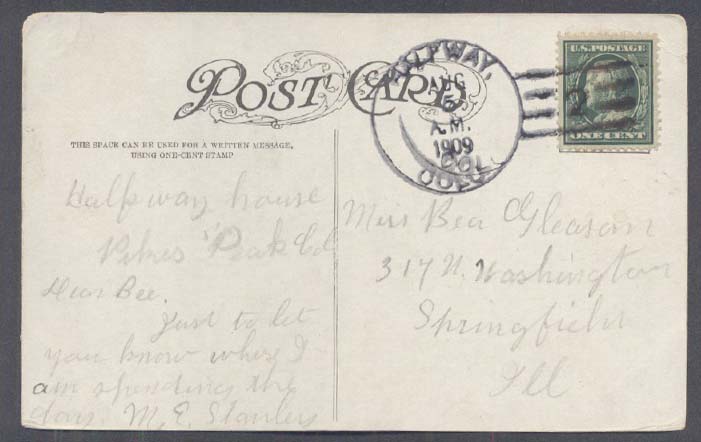 POST CARD
THIS SPACE CAN BE USED FOR A WRITTEN MESSAGE,
USING ONE-CENT STAMP
HALFWAY,
AUG
5
A.M.
1909
COLO.
2
U.S. POSTAGE
ONE CENT
Halfway house
Pikes Peak Col
Dear Bee.
Just to let
you know where I
am spending the
day. M. E. Stanley
Miss Bea Gleason
317 N. Washington
Springfield
Ill